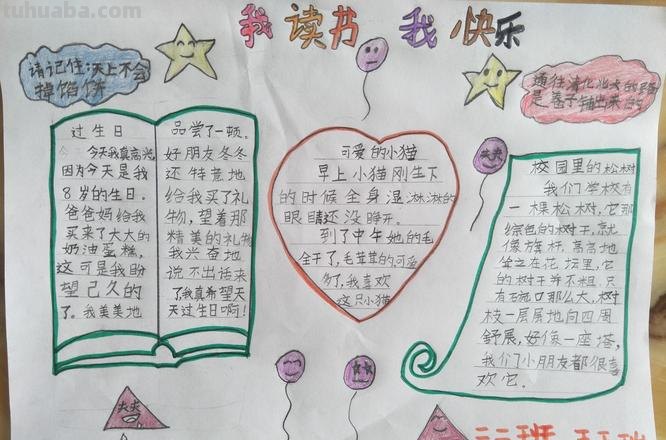 tuhuaba.com
我读书 我快乐
请记住:天上不会
掉馅饼
通往清化北大的路
是卷子铺出来的
过生日
今天我真高兴,
因为今天是我
8岁的生日。
爸爸妈给我
买来了大大的
奶油蛋糕,
这可是我盼
望己久的
了。我美美地
品尝了一顿。
好朋友冬冬
还特意地
给我买了礼
物,望着那
精美的礼物
我兴奋地
说不出话来
了我真希望天
天过生日啊!
可爱的小猫
早上小猫刚生下
的时候全身湿淋淋的
眼睛还没睁开。
到了中午她的毛
全干了,毛茸茸的可爱
了,我喜欢
这只小猫
校园里的松树
我们学校有
一棵松树,它那
棕色的树干,就
像旗杆,高高地
耸立在花坛里,它
的树干并不粗,只
有碗口那么大,树
枝一层层地向四周
舒展,好像一座塔,
我们小朋友都很喜
欢它。
夫夫
夫夫
二二班